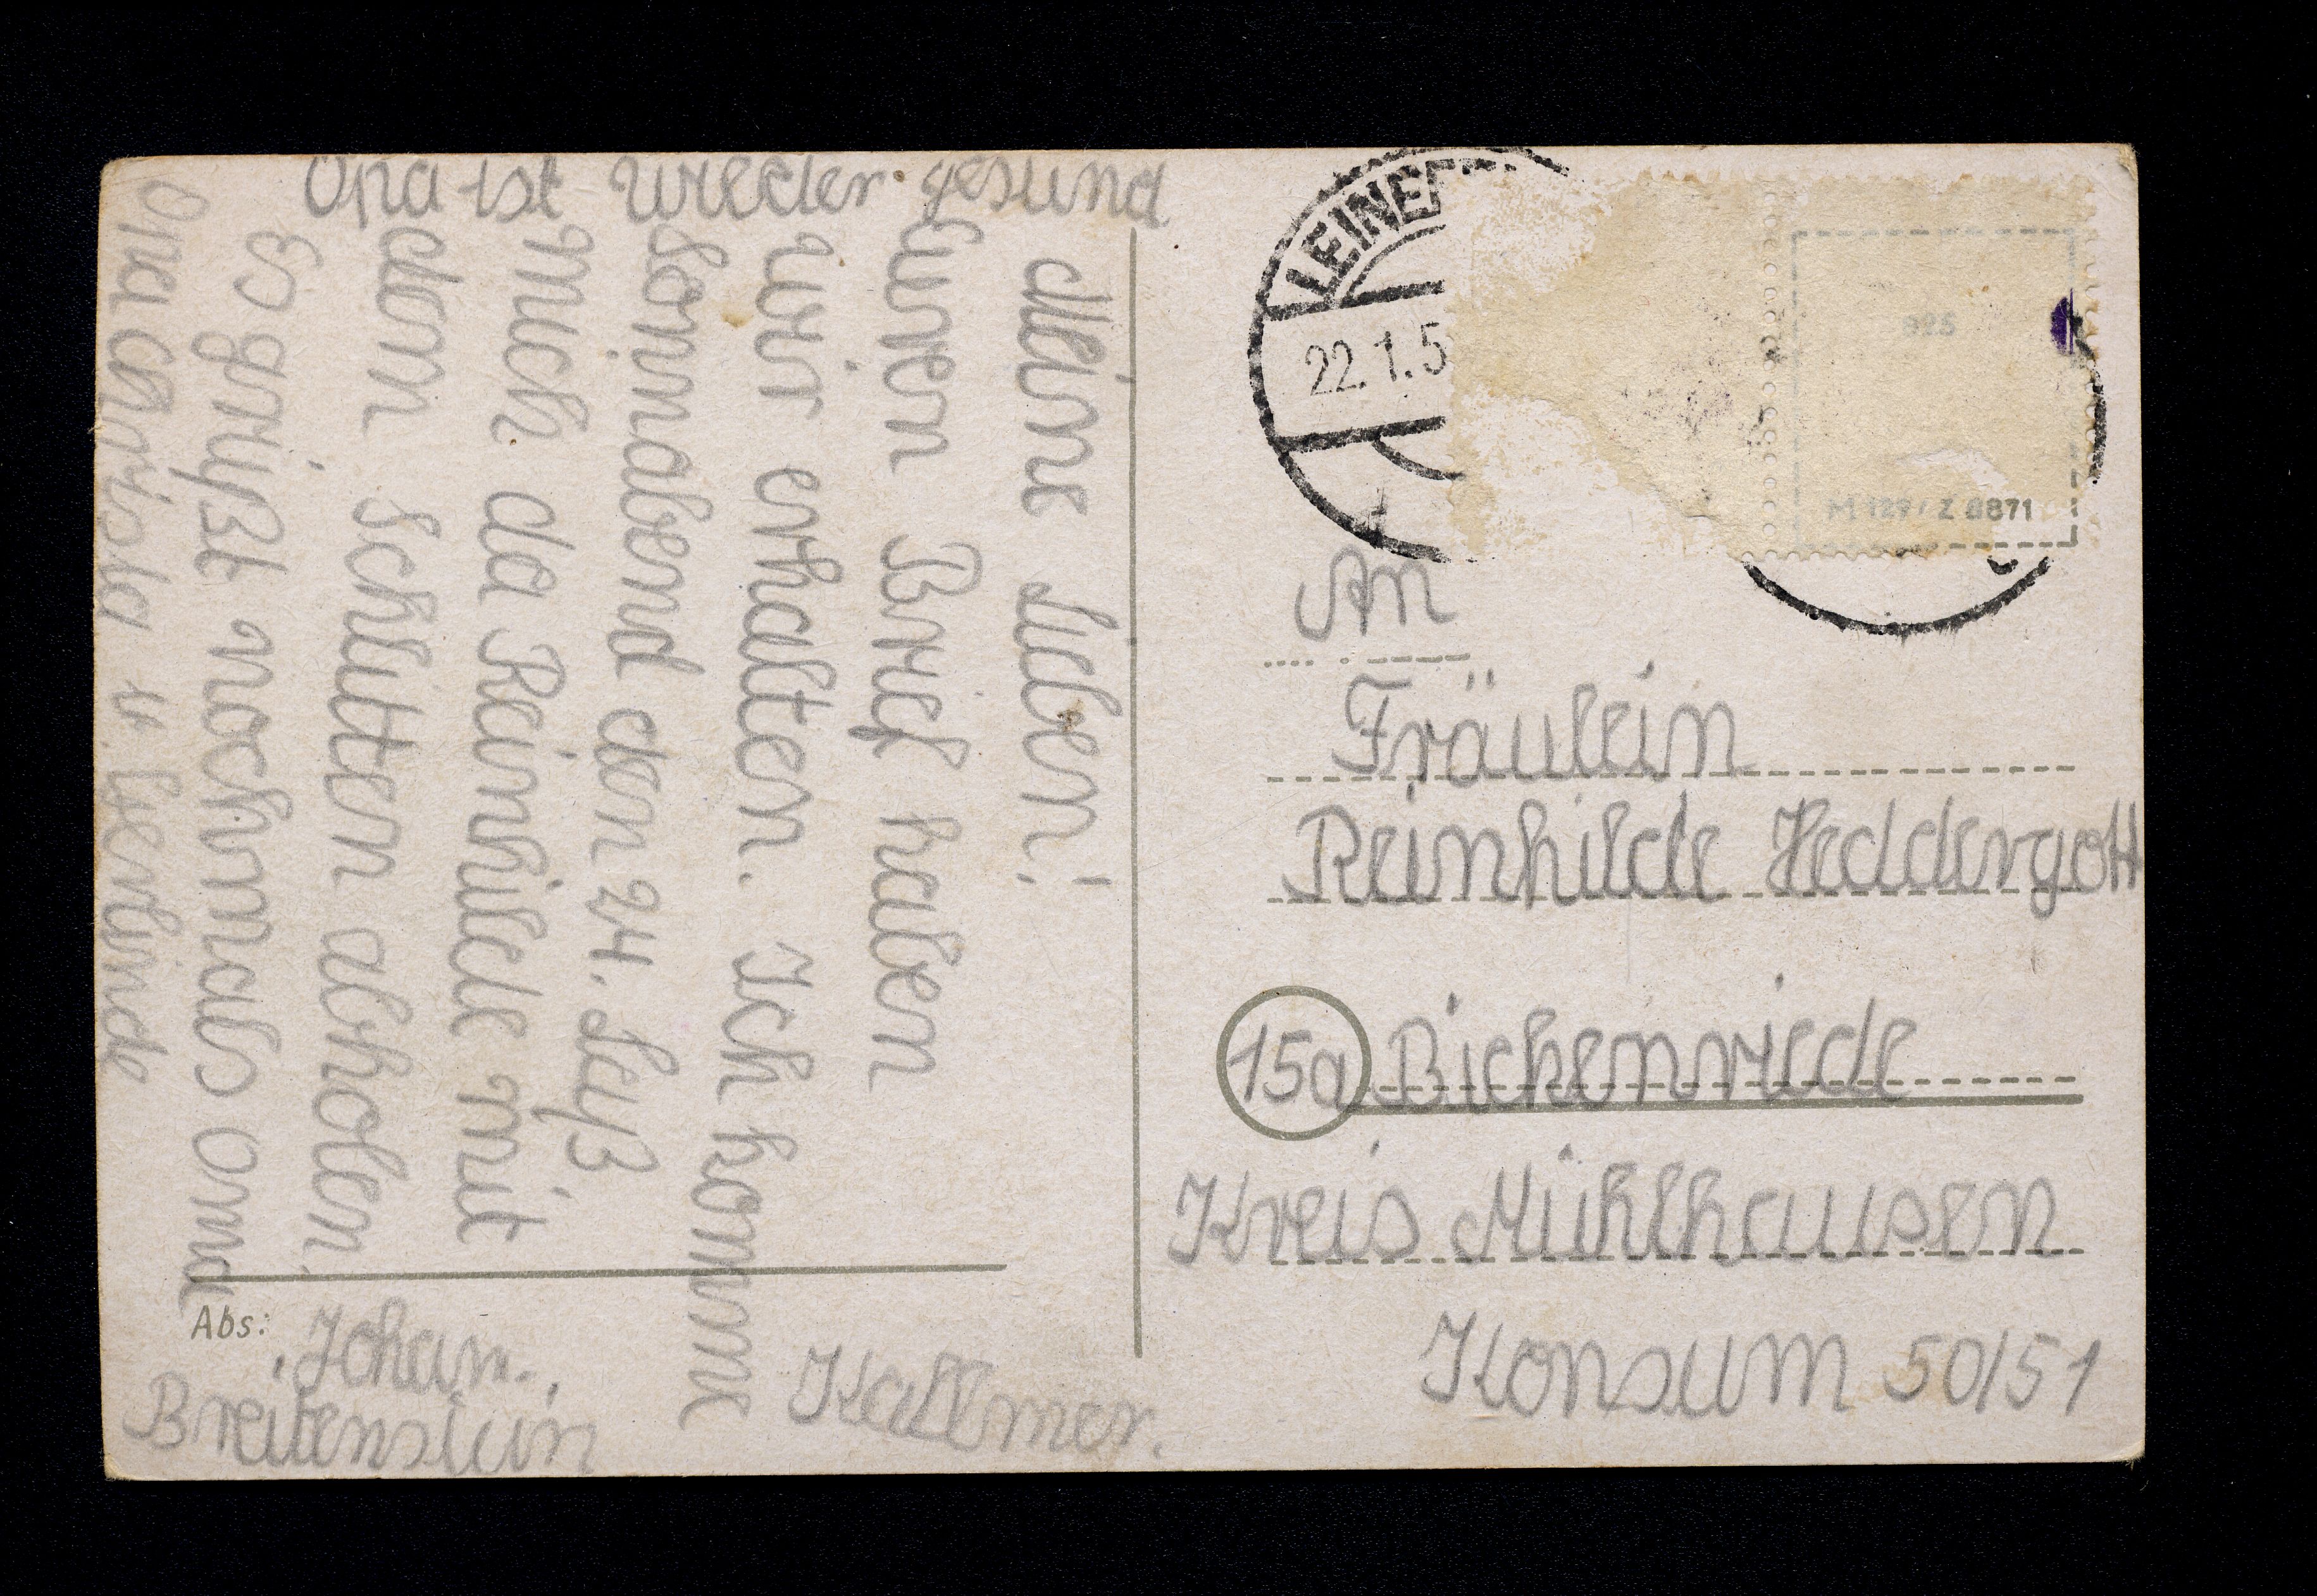 Opa ist wieder gesund
Meine Lieben!
Euren Brief haben
wir erhalten. Ich komme
Sonnabend den 24. Leß
mich da Reinhilde mit
dem Schlitten abholen.
Es grüßt nochmals Oma
Opa Christa u. Gerlinde
Abs: Johan.
Breitenstein
Kallmer.
LEINEF
22.1.5
925
M 129/Z 8871
An
Fräulein
Reinhilde Heddergott
15a Bickenriede
Kreis Mühlhausen
Konsum 50/51